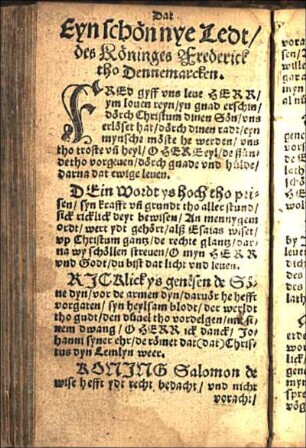 Dat
Eyn schön nye Ledt/
des Köninges Frederick
tho Dennemarcken.
FRED gyff vns leue HERR/
ym louen reyn/ yn gnad erschin/
dörch Christum dinen Sön/ vns
erlöset hat/ dörch dinen radt/ eyn
mynsche möste he werden/ vns
tho troste vñ heyl/ O HERE eyl/ de sün/
de tho vorgeuen/ dörch gnade vnd hülde/
darna dat ewige leuen.
DEin Wordt ys hoch tho pri-
sen/ syn krafft vñ grundt tho aller stund/
sick ricklick deyt bewisen/ An mennygem
ordt/ wert ydt gehört/ als Esaias wiset/
vp Christum gantz/ de rechte glantz/ dar-
na wy schöllen streuen/ O myn HERR
vnd Godt/ du bist dat licht vnd leuen.
RICKlick ys genesen de Sö-
ne dyn/ vor de armen dyn/ daruör he hefft
vorgaten/ syn heylsam blodt/ der werldt
tho gudt/ den düuel tho vordelgen/
dwang/ O HERR ick danck/ Jo-
hanni syner ehr/ de römet dat (dat) Chris-
tus dyn Lemlyn weer.
KONING Salomon de
wise hefft ydt recht bedacht/ vnd nicht
voracht/